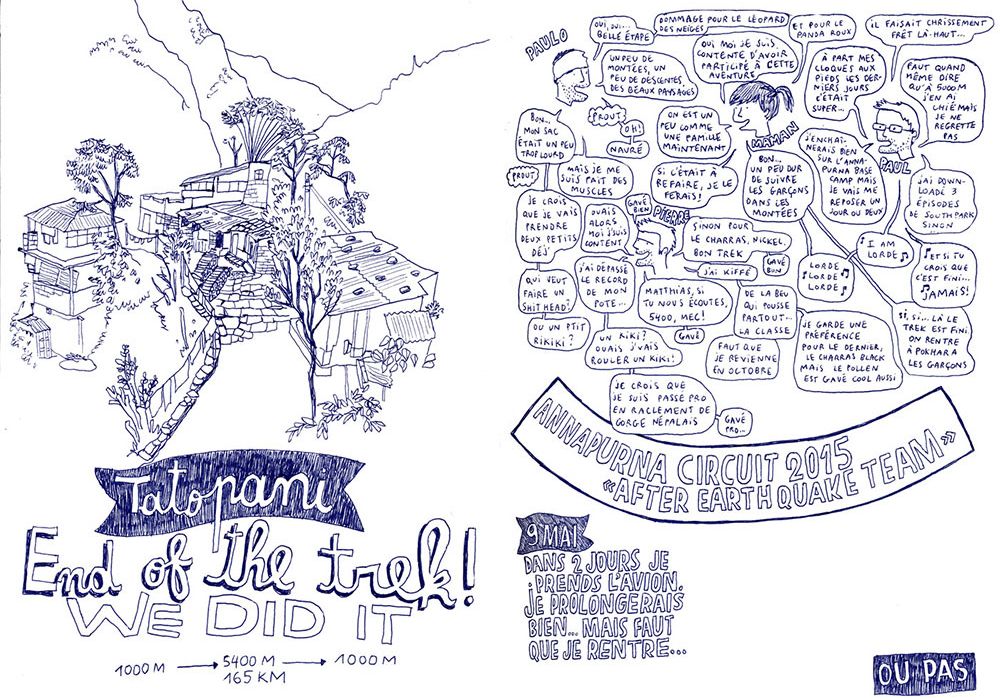 Tatopani
End of the trek!
WE DID IT
1000 M → 5400 M → 1000 M
165 KM
PAULO
OUI, OUI...
BELLE ÉTAPE
DOMMAGE POUR LE LÉOPARD
DES NEIGES
ET POUR LE
PANDA ROUX
IL FAISAIT CHRISSEMENT
FRÊT LÀ-HAUT...
UN PEU DE
MONTÉES, UN
PEU DE DESCENTES,
DES BEAUX PAYSAGES
OUI MOI JE SUIS
CONTENTE D'AVOIR
PARTICIPÉ À CETTE
AVENTURE
À PART MES
CLOQUES AUX
PIEDS LES DER-
NIERS JOURS
C'ÉTAIT
SUPER...
FAUT QUAND
MÊME DIRE
QU'À 5000M
J'EN AI
CHIÉ MAIS
JE NE
REGRETTE
PAS
PROUT
OH!
NAVRÉ
BON...
MON SAC
ÉTAIT UN PEU
TROP LOURD
ON EST UN
PEU COMME
UNE FAMILLE
MAINTENANT
MAMAN
PAUL
PROUT
MAIS JE ME
SUIS FAIT DES
MUSCLES
SI C'ÉTAIT À
REFAIRE, JE LE
FERAIS!
BON...
UN PEU DUR
DE SUIVRE
LES GARÇONS
DANS LES
MONTÉES
J'ENCHAÎ-
NERAIS BIEN
SUR L'ANNA-
PURNA BASE
CAMP MAIS
JE VAIS ME
REPOSER UN
JOUR OU DEUX
J'AI DOWN-
LOADÉ 3
ÉPISODES
DE SOUTH PARK
SINON
JE CROIS
QUE JE VAIS
PRENDRE
DEUX PETITS
DÉJ'
OUAIS
ALORS
MOI J'SUIS
CONTENT
GAVÉ
BIEN
PIERRE
SINON POUR
LE CHARRAS, NICKEL.
BON TREK
J'AI KIFFÉ
GAVÉ
BUN
LORDE
LORDE
LORDE
I AM
LORDE
ET SI TU
CROIS QUE
C'EST FINI...
JAMAIS!
QUI VEUT
FAIRE UN
SHIT HEAD?
J'AI DÉPASSÉ
LE RECORD
DE MON
POTE...
MATTHIAS, SI
TU NOUS ÉCOUTES,
5400, MEC!
GAVÉ
DE LA BEU
QUI POUSSE
PARTOUT...
LA CLASSE
SI, SI... LÀ LE
TREK EST FINI.
ON RENTRE
À POKHARA
LES GARÇONS
OU UN PTIT
RIKIKI?
UN KIKI?
OUAIS J'VAIS
ROULER UN KIKI!
FAUT QUE
JE REVIENNE
EN OCTOBRE
JE GARDE UNE
PRÉFÉRENCE
POUR LE DERNIER,
LE CHARRAS BLACK
MAIS LE POLLEN
EST GAVÉ COOL AUSSI
JE CROIS QUE
JE SUIS PASSÉ PRO
EN RACLEMENT DE
GORGE NÉPALAIS
GAVÉ
PRO...
ANNAPURNA CIRCUIT 2015
«AFTER EARTHQUAKE TEAM»
9 MAI
DANS 2 JOURS JE
PRENDS L'AVION.
JE PROLONGERAIS
BIEN... MAIS FAUT
QUE JE RENTRE...
OU PAS